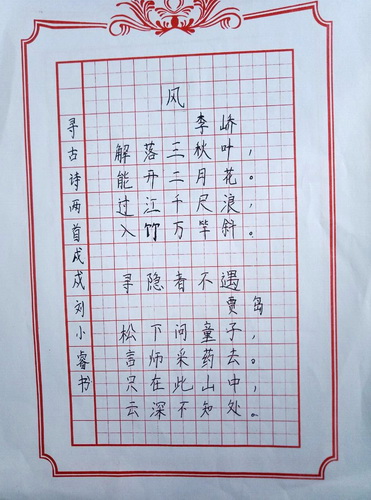 风
李峤
解落三秋叶，
能开二月花。
过江千尺浪，
入竹万竿斜。
寻隐者不遇
贾岛
松下问童子，
言师采药去。
只在此山中，
云深不知处。
寻古诗两首戊戌刘小睿书